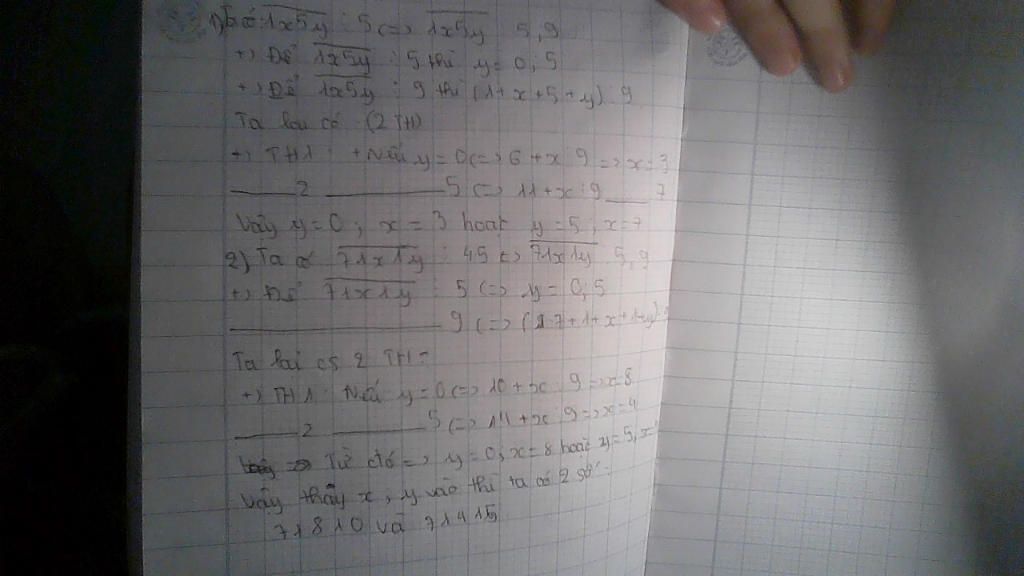 1) Ta có: 1x5y ⋮ 5 <=> 1x5y 5,9
+) Để 1x5y ⋮ 5 thì y = 0; 5
+) Để 1x5y ⋮ 9 thì (1+x+5+y) 9
Ta lại có (2 TH)
+) TH1: +Nếu y=0 <=> 6+x ⋮ 9 => x=3
——— 2 ————— 5 <=> 11+x ⋮ 9 ——— 7
Vậy y=0; x=3 hoặc y=5; x=7
2) Ta có 71x1y ⋮ 45 <=> 71x1y 5,9
+) Để 71x1y ⋮ 5 <=> y = 0; 5
————————— 9 <=> (7+1+x+1+y)
Ta lại có 2 TH:
+) TH1: Nếu y=0 <=> 10+x ⋮ 9 => x=8
——— 2 ————— 5 <=> 14+x ⋮ 9 => x=4
Từ đó => y=0; x=8 hoặc y=5, x
Vậy thay x, y vào thì ta có 2 số:
71810 và 71415